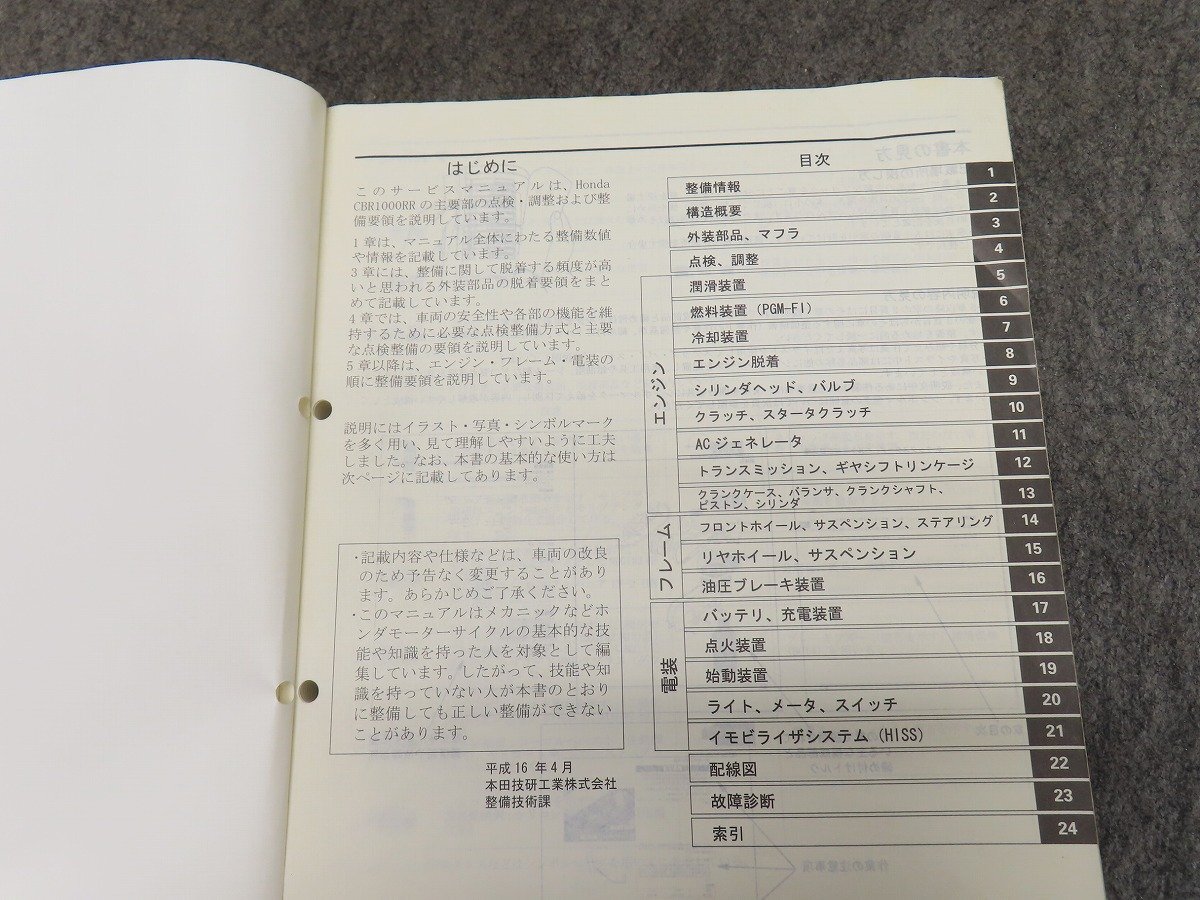 はじめに
このサービスマニュアルは、Honda
CBR1000RR の主要部の点検・調整および整
備要領を説明しています。
1 章は、マニュアル全体にわたる整備数値
や情報を記載しています。
3 章には、整備に関して脱着する頻度が高
いと思われる外装部品の脱着要領をまと
めて記載しています。
4 章では、車両の安全性や各部の機能を維
持するために必要な点検整備方式と主要
な点検整備の要領を説明しています。
5 章以降は、エンジン・フレーム・電装の
順に整備要領を説明しています。
説明にはイラスト・写真・シンボルマーク
を多く用い、見て理解しやすいように工夫
しました。なお、本書の基本的な使い方は
次ページに記載してあります。
・記載内容や仕様などは、車両の改良
のため予告なく変更することがあり
ます。あらかじめご了承ください。
・このマニュアルはメカニックなどホ
ンダモーターサイクルの基本的な技
能や知識を持った人を対象として編
集しています。したがって、技能や知
識を持っていない人が本書のとおり
に整備しても正しい整備ができない
ことがあります。
平成 16 年 4 月
本田技研工業株式会社
整備技術課
目次
整備情報 1
構造概要 2
外装部品、マフラ 3
点検、調整 4
エンジン
潤滑装置 5
燃料装置 (PGM-FI) 6
冷却装置 7
エンジン脱着 8
シリンダヘッド、バルブ 9
クラッチ、スタータクラッチ 10
AC ジェネレータ 11
トランスミッション、ギヤシフトリンケージ 12
クランクケース、バランサ、クランクシャフト、
ピストン、シリンダ 13
フレーム
フロントホイール、サスペンション、ステアリング 14
リヤホイール、サスペンション 15
油圧ブレーキ装置 16
電装
バッテリ、充電装置 17
点火装置 18
始動装置 19
ライト、メータ、スイッチ 20
イモビライザシステム (HISS) 21
配線図 22
故障診断 23
索引 24